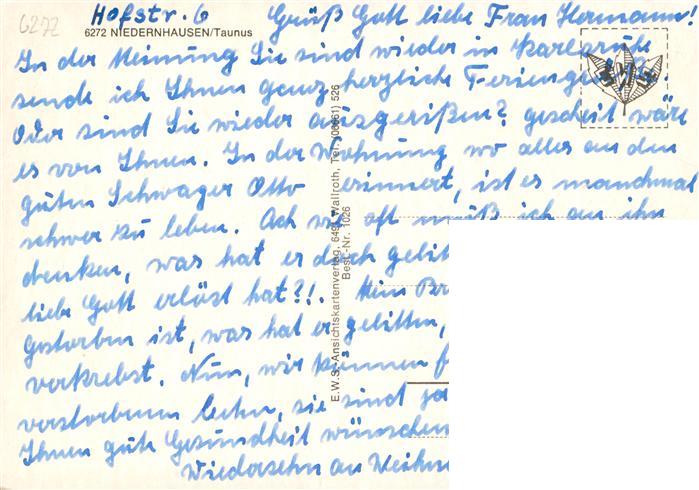 6272
Hofstr. 6
6272 NIEDERNHAUSEN/Taunus
Grüß Gott liebe Frau Hermann!
In der Meinung Sie sind wieder in Karlsruhe
sende ich Ihnen ganz herzliche
Oder sind Sie wieder ausgerißen? gescheit wäre
es von Ihnen. In der Wohnung wo alles an den
guten Schwager Otto erinnert, ist es manchmal
schwer zu leben. Ach wie oft muß ich an ihn
denken, was hat er doch
liebe Gott erlöst hat?!. Mein
Gestorben ist, was hat er gelitten,
verkrebst. Nun, wir können
verstorbenen sie sind
Ihnen gute Gesundheit wünschen
Wiedersehn an
E.W.S.-Ansichtskartenverlag, 6495 Wallroth, Tel. (06661) 526
Best.-Nr. 1026